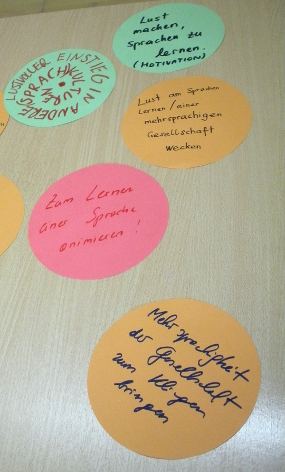 Lust
machen,
Sprachen zu
lernen.
(MOTIVATION)
LUSTVOLLER EINSTIEG IN
ANDERE SPRACH(KUL
TUREN
Lust am Sprachen
Lernen / einer
mehrsprachigen
Gesellschaft
wecken
Zum Lernen
einer Sprache
animieren!
Mehrsprachigkeit
der Gesellschaft
zum Klingen
bringen